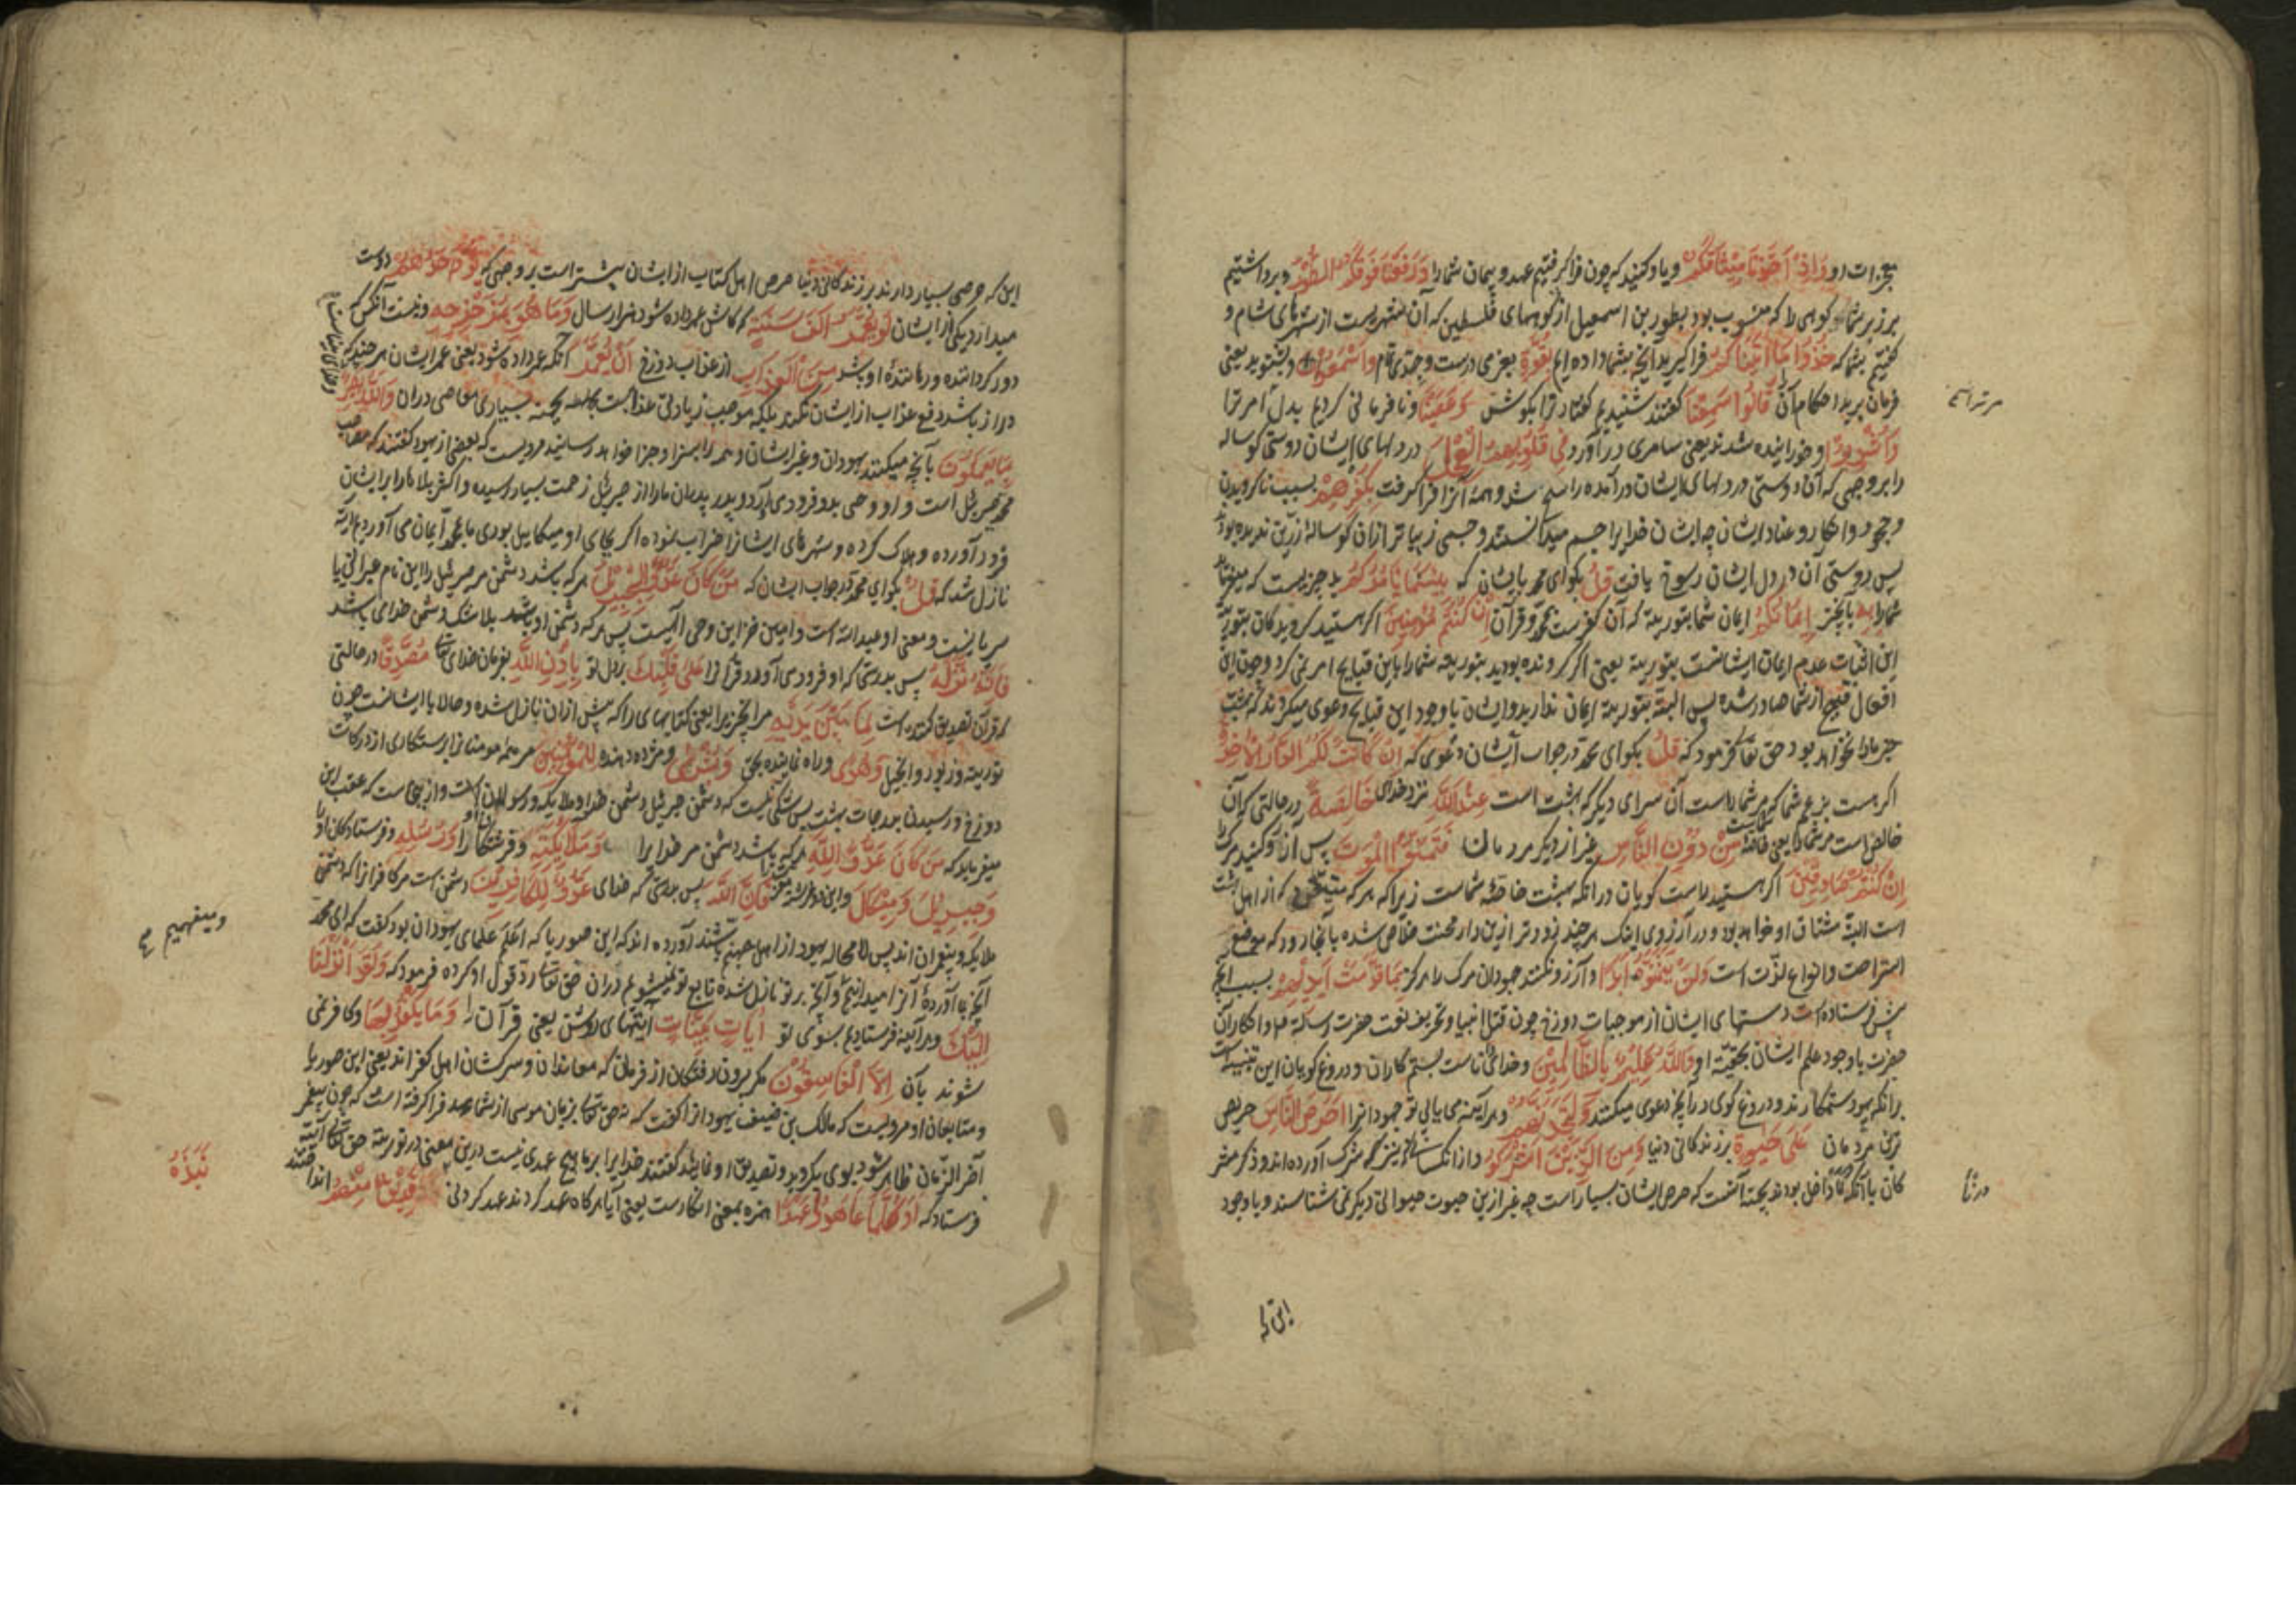 معجزات او وَإِذْ أَخَذْنَا مِيثَاقَكُمْ و یاد کنید که چون فراگرفتیم عهد و پیمان شما را وَرَفَعْنَا فَوْقَكُمُ الطُّورَ و برداشتیم
بر زبر شما کوهی را که منسوب بود بطور بن اسمعیل از کوههای فلسطین که آن شهریست از شهرهای شام و
گفتیم بشما که خُذُوا مَا آتَيْنَاكُمْ فراگیرید آنچه بشما داده ایم بِقُوَّةٍ بعزمی درست و جدی تمام وَاسْمَعُوا و بشنوید یعنی
فرمان برید احکام آن قَالُوا سَمِعْنَا گفتند شنیدیم گفتار ترا بگوش وَعَصَيْنَا و نافرمانی کردیم بدل امر ترا
وَأُشْرِبُوا و خورانیده شدند یعنی سامری درآورد فِي قُلُوبِهِمُ الْعِجْلَ در دلهای ایشان دوستی گوساله
را بر وجهی که آن دوستی در دلهای ایشان درآمده راسخ شد و همه آنرا فراگرفت بِكُفْرِهِمْ بسبب ناگرویدن
و جحود و انکار و عناد ایشان چه ایشان خدایرا جسم میدانستند و جسمی زیباتر از آن گوساله زرین ندیده بودند
پس دوستی آن در دل ایشان رسوخ یافت قُلْ بگو ای محمد بایشان که بِئْسَمَا يَأْمُرُكُمْ بد چیزیست که میفرماید
شما را بِهِ بآن چیز إِيمَانُكُمْ ایمان شما بتوریة که آن کفرست بمحمد و قرآن إِنْ كُنْتُمْ مُؤْمِنِينَ اگر هستید گرویدگان بتوریة
این اثبات عدم ایمان ایشانست بتوریة یعنی اگر گرونده بودید بتوریة شما را باین قبایح امر نمی کرد و چون این
افعال قبیح از شما صادر شده پس البته بتوریة ایمان ندارید و ایشان با وجود این قبایح دعوی میکردند که بهشت
جز ما را نخواهد بود حق تعالی فرمود که قُلْ بگو ای محمد در جواب ایشان دعوی که إِنْ كَانَتْ لَكُمُ الدَّارُ الْآخِرَةُ
اگر هست بزعم شما که مر شما راست آن سرای دیگر که بهشت است عِنْدَ اللَّهِ نزد خدای خَالِصَةً در حالتی که آن
خالص است مر شما را یعنی خاصه شماست مِنْ دُونِ النَّاسِ غیر از دیگر مردمان فَتَمَنَّوُا الْمَوْتَ پس آرزو کنید مرگ را
إِنْ كُنْتُمْ صَادِقِينَ اگر هستید راست گویان در آنکه بهشت خاصه شماست زیرا که هر که متیقن بود که از اهل بهشت
است البته مشتاق او خواهد بود و در آرزوی اینکه هر چند زودتر ازین دار محنت خلاص شده بآنجا رود که موضع
استراحت و انواع لذت است وَلَنْ يَتَمَنَّوْهُ أَبَدًا و آرزو نکنند جهودان مرگ را هرگز بِمَا قَدَّمَتْ أَيْدِيهِمْ بسبب آنچه
پیش فرستاده است دستهای ایشان از موجبات دوزخ چون قتل انبیا و تحریف نعت حضرت رسالة و انکار آن
حضرت با وجود علم ایشان بحقیة او وَاللَّهُ عَلِيمٌ بِالظَّالِمِينَ و خدای داناست بستم کاران و دروغ گویان این تنبیه است
بر آنکه یهود ستمکارند و دروغ گوی در آنچه دعوی میکنند وَلَتَجِدَنَّهُمْ و هر آینه می یابی تو جهودانرا أَحْرَصَ النَّاسِ حریص
ترین مردمان عَلَى حَيٰوةٍ بر زندگانی دنیا وَمِنَ الَّذِينَ أَشْرَكُوا و از آنکسانی نیز که شرک آورده اند و ذکر مشر
کان با آنکه داخل بودند بجهة آنست که حرص ایشان بسیار است چه غیر ازین حیوت حیوانی دیگر نمی شناسند و با وجود
این که
این که حرصی بسیار دارند بر زندگانی دنیا حرص اهل کتاب از ایشان بیشتر است بر وجهی که يَوَدُّ أَحَدُهُمْ دوست
میدارد یکی از ایشان لَوْ يُعَمَّرُ أَلْفَ سَنَةٍ که کاش عمر داده شود هزار سال وَمَا هُوَ بِمُزَحْزِحِهِ و نیست آنکس که
دور گرداننده و رهاننده او باشد مِنَ الْعَذَابِ از عذاب دوزخ أَنْ يُعَمَّرَ آنکه عمر داده شود یعنی عمر ایشان هر چند که
دراز باشد دفع عذاب از ایشان نکند بلکه موجب زیادتی عذابست بجهة بسیاری معاصی در آن وَاللَّهُ بَصِيرٌ
بِمَا يَعْمَلُونَ بآنچه میکنند یهودان و غیر ایشان و همه را بسزا و جزا خواهد رسانید مرویست که بعضی از یهود گفتند که صاحب
محمد جبرئیل است و او وحی بدو فرود می آرد و پدر پدران ما را از جبرئیل زحمت بسیار رسیده و اکثر بلاها را بر ایشان
فرود آورده و هلاک کرده و شهرهای ایشانرا خراب نموده اگر بجای او میکائیل بودی ما بمحمد ایمان می آوردیم آیة
نازل شد که قُلْ بگو ای محمد در جواب ایشان که مَنْ كَانَ عَدُوًّا لِجِبْرِيلَ هر که باشد دشمن مر جبرئیل را این نام عبرانی یا
سریانیست و معنی او عبدالله است و امین خزاین وحی الهیست پس هر که دشمن او باشد بلا شک دشمن خدای باشد
فَإِنَّهُ نَزَّلَهُ پس بدرستی که او فرود می آورد قرآنرا عَلَى قَلْبِكَ بر دل تو بِإِذْنِ اللَّهِ بفرمان خدای مُصَدِّقًا در حالتی
که قرآن تصدیق کننده است لِمَا بَيْنَ يَدَيْهِ مر آنچیز را یعنی کتابهای را که پیش از آن نازل شده و حالا با ایشانست چون
توریة و زبور و انجیل وَهُدًى و راه نماینده بحق وَبُشْرَى و مژده دهنده لِلْمُؤْمِنِينَ مر همه مومنانرا برستگاری از درکات
دوزخ و رسیدن بدرجات بهشت پس شکی نیست که دشمن جبرئیل دشمن خدا و ملایکه و رسولان است و از اینجاست که عقب این
میفرماید که مَنْ كَانَ عَدُوًّا لِلَّهِ هر که باشد دشمن مر خدا یرا وَمَلَائِكَتِهِ و فرشتگان او را وَرُسُلِهِ و فرستادگان او را
وَجِبْرِيلَ وَمِيكَالَ و این دو فرشته فَإِنَّ اللَّهَ پس بدرستی که خدای عَدُوٌّ لِلْكَافِرِينَ دشمن است مر کافرانرا که دشمن
ملایکه و پیغمبران اند پس لا محاله یهود از اهل جهنم باشند آورده اند که ابن صوریا که اعلم علمای یهودان بود گفت که ای محمد
آنچه بما آورده آنرا نمیدانیم و آیتی بر تو نازل شده تابع تو بشویم در آن حق تعالی رد قول او کرده فرمود که وَلَقَدْ أَنْزَلْنَا
إِلَيْكَ و هر آینه فرستادیم بسوی تو آيَاتٍ بَيِّنَاتٍ آیتهای روشن یعنی قرآن را وَمَا يَكْفُرُ بِهَا و کافر نمی
شوند بآن إِلَّا الْفَاسِقُونَ مگر بیرون رفتگان از فرمان که معاندان و سرکشان اهل کفراند یعنی ابن صوریا
و متابعان او مرویست که مالک بن ضیف یهود را گفت که نه حق تعالی بزبان موسی از شما عهد فراگرفته است که چون پیغمبر
آخر الزمان ظاهر شود بوی بگروید و تصدیق او نمایید گفتند خدایرا بر ما هیچ عهدی نیست درین معنی در توریة حق تعالی آیة
فرستاد که أَوَكُلَّمَا عَاهَدُوا عَهْدًا همزه بمعنی انکارست یعنی آیا هرگاه عهد کردند عهد کردنی فَرِيقٌ مِنْهُمْ انداختند
نَبَذَهُ